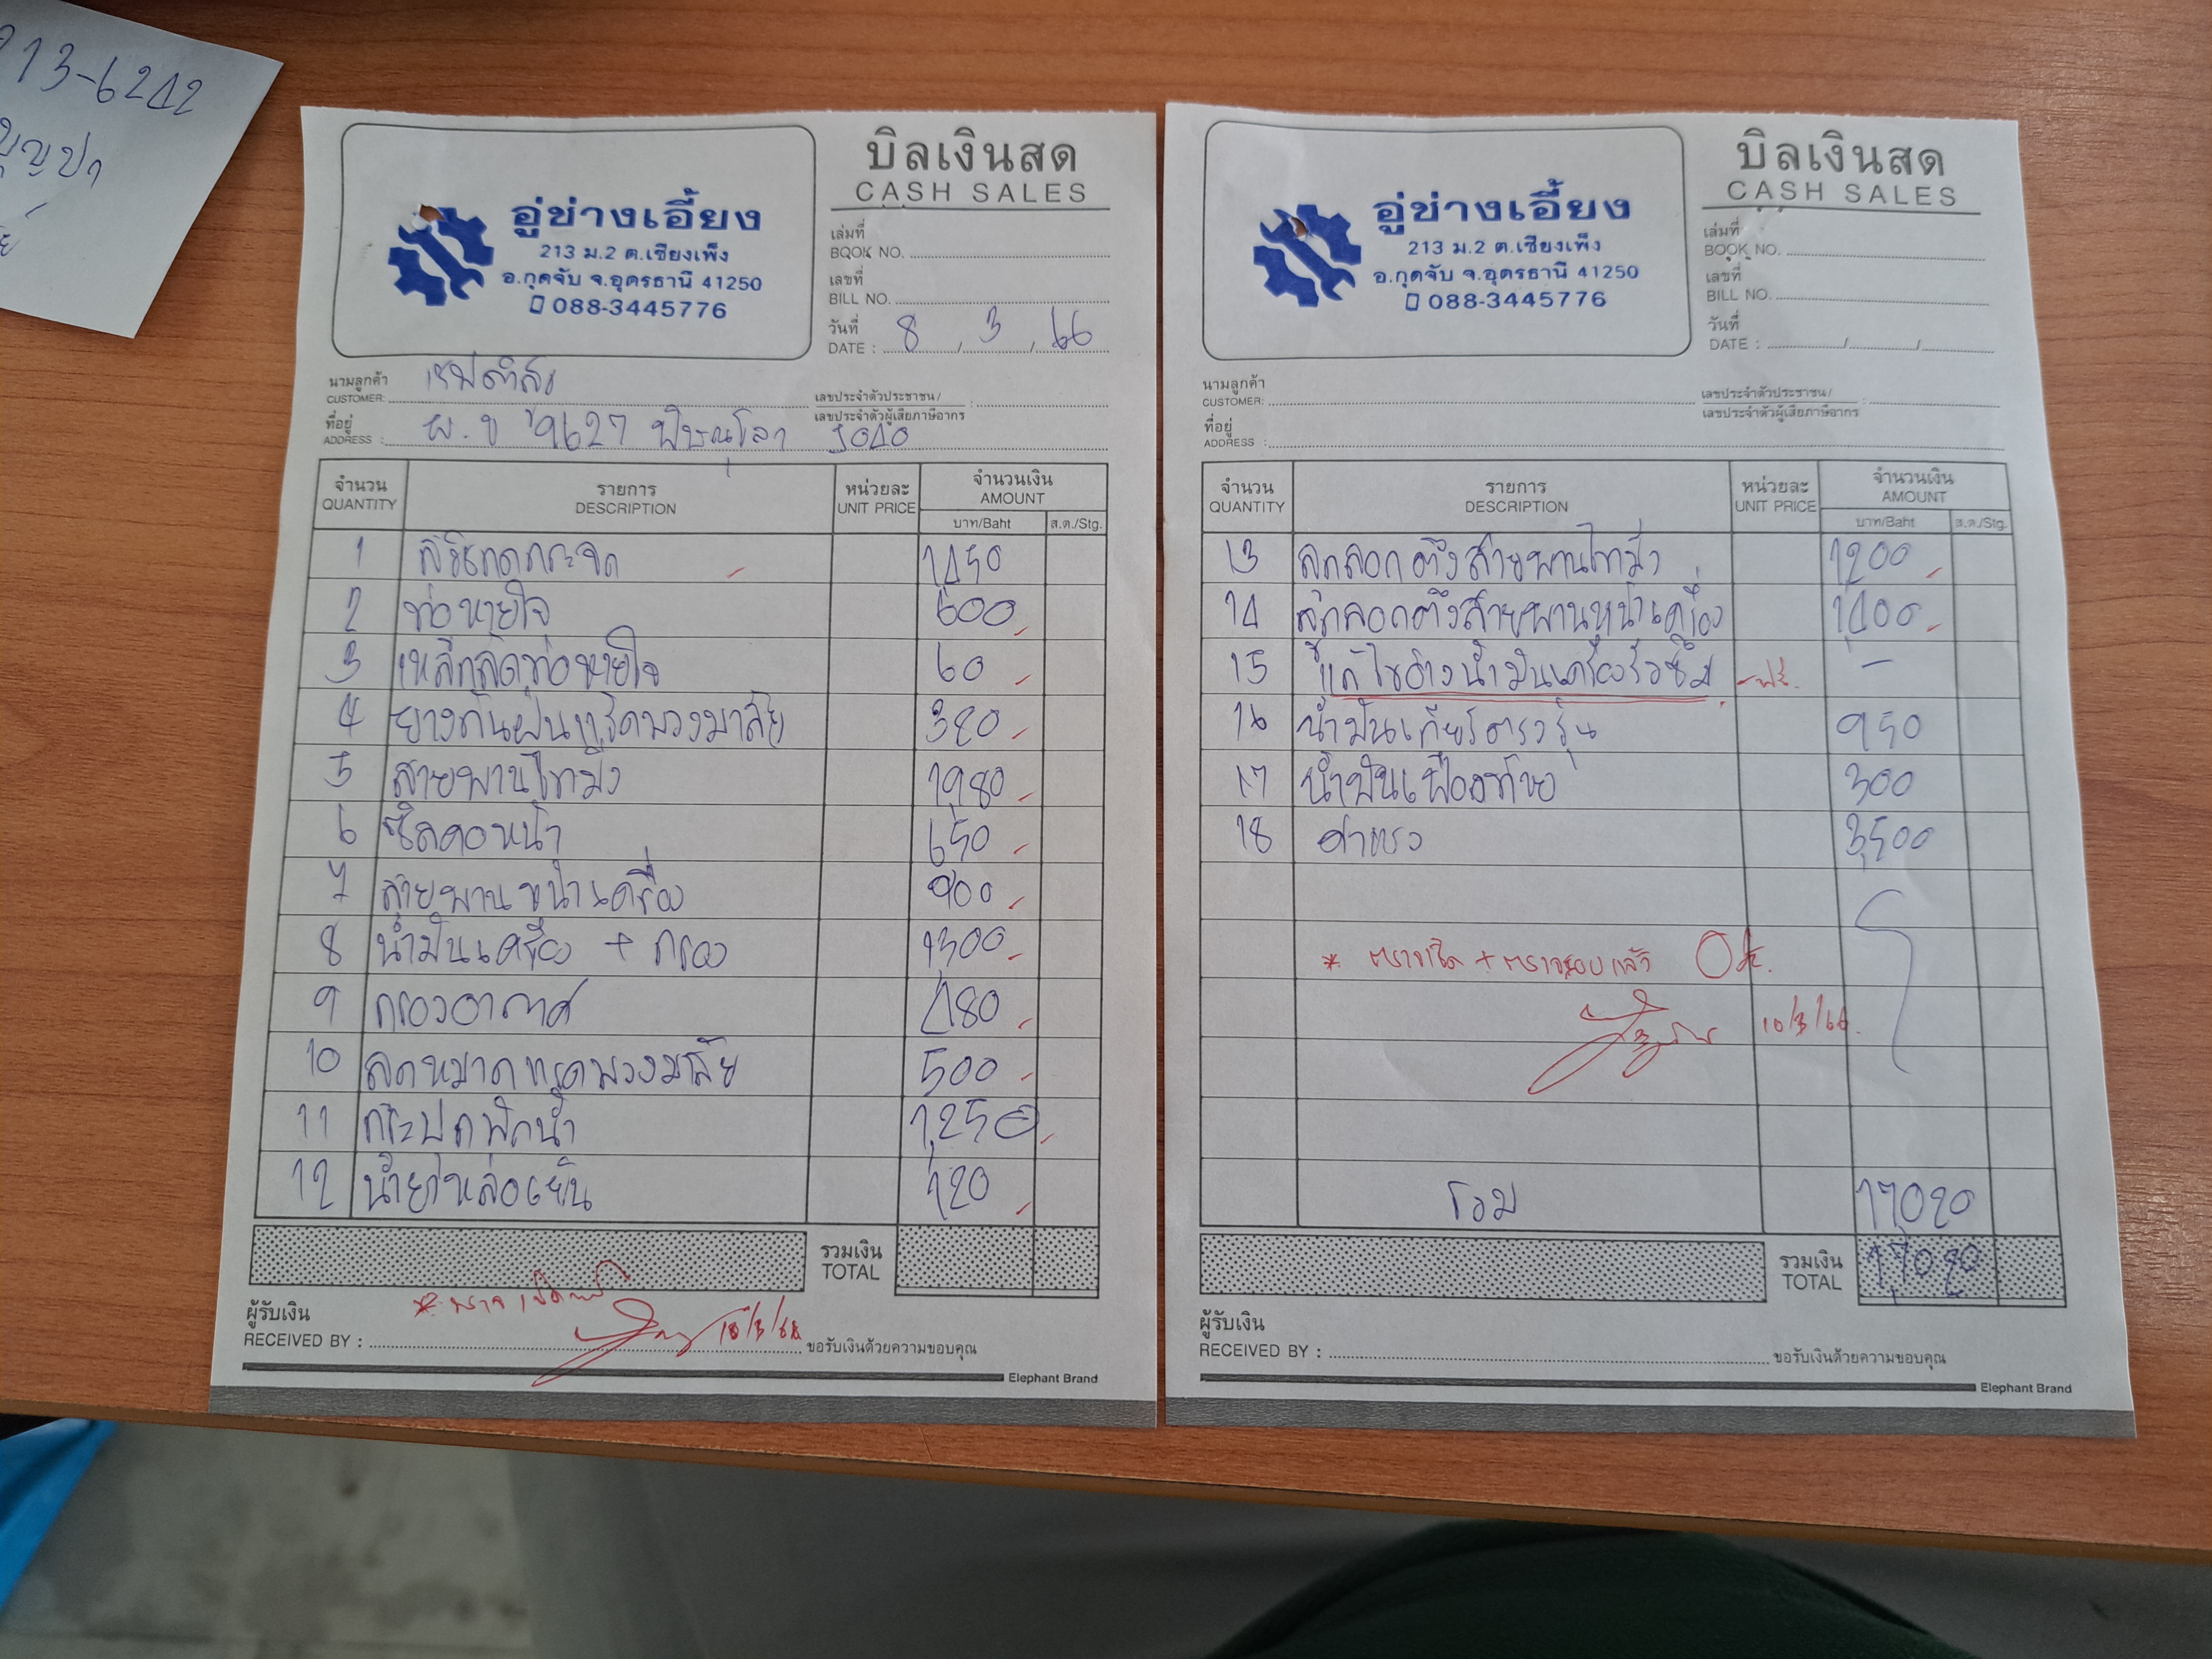 13-6242
บิลเงินสด
CASH SALES
อู่ช่างเอี้ยง
213 ม.2 ต.เชียงเพ็ง
อ.กุดจับ จ.อุดรธานี 41250
088-3445776
เล่มที่
BOOK NO.
เลขที่
BILL NO.
วันที่
DATE : 8 / 3 / 66
นามลูกค้า
CUSTOMER:
เลขประจำตัวประชาชน /
เลขประจำตัวผู้เสียภาษีอากร :
ที่อยู่
ADDRESS : ผ.ข 9627 พิษณุโลก
จำนวน รายการ หน่วยละ จำนวนเงิน
QUANTITY DESCRIPTION UNIT PRICE AMOUNT
บาท/Baht ส.ต./Stg.
1 1450
2 ท่อหายใจ 600
3 เหล็กลัดท่อหายใจ 60
4 ยางกันฝุ่นแร็คพวงมาลัย 320
5 สายพานไทม์มิ่ง 1,980
6 ซีลคอหน้า 650
7 สายพานหน้าเครื่อง 900
8 น้ำมันเครื่อง + กรอง 1,300
9 กรองอากาศ 480
10 ลูกหมากแรคพวงมาลัย 500
11 กระปุกพักน้ำ 1,250
12 น้ำยาหล่อเย็น 120
รวมเงิน
TOTAL
ผู้รับเงิน
RECEIVED BY : 10/3/66 ขอรับเงินด้วยความขอบคุณ
Elephant Brand
บิลเงินสด
CASH SALES
อู่ช่างเอี้ยง
213 ม.2 ต.เชียงเพ็ง
อ.กุดจับ จ.อุดรธานี 41250
088-3445776
เล่มที่
BOOK NO.
เลขที่
BILL NO.
วันที่
DATE : / /
นามลูกค้า
CUSTOMER:
เลขประจำตัวประชาชน /
เลขประจำตัวผู้เสียภาษีอากร :
ที่อยู่
ADDRESS :
จำนวน รายการ หน่วยละ จำนวนเงิน
QUANTITY DESCRIPTION UNIT PRICE AMOUNT
บาท/Baht ส.ต./Stg.
13 ลูกลอกตึงสายพานไทม์มิ่ง 1,200
14 ลูกลอกตึงสายพานหน้าเครื่อง 1,400
15 แก้ไขอ่างน้ำมันเครื่องรั่วซึม -ฟรี. -
16 น้ำมันเกียร์ตรงรุ่น 950
17 น้ำมันเฟืองท้าย 300
18 ค่าแรง 3,500
Ok.
10/3/66.
รวม 17,020
รวมเงิน
TOTAL 17,020
ผู้รับเงิน
RECEIVED BY : ขอรับเงินด้วยความขอบคุณ
Elephant Brand